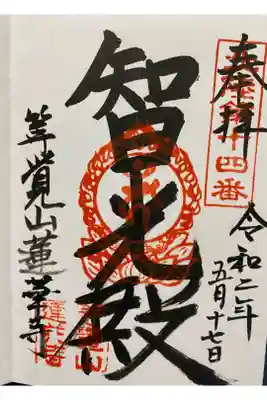 奉拝
四番
令和二年
五月十七日
智光殿
等覺山蓮華寺